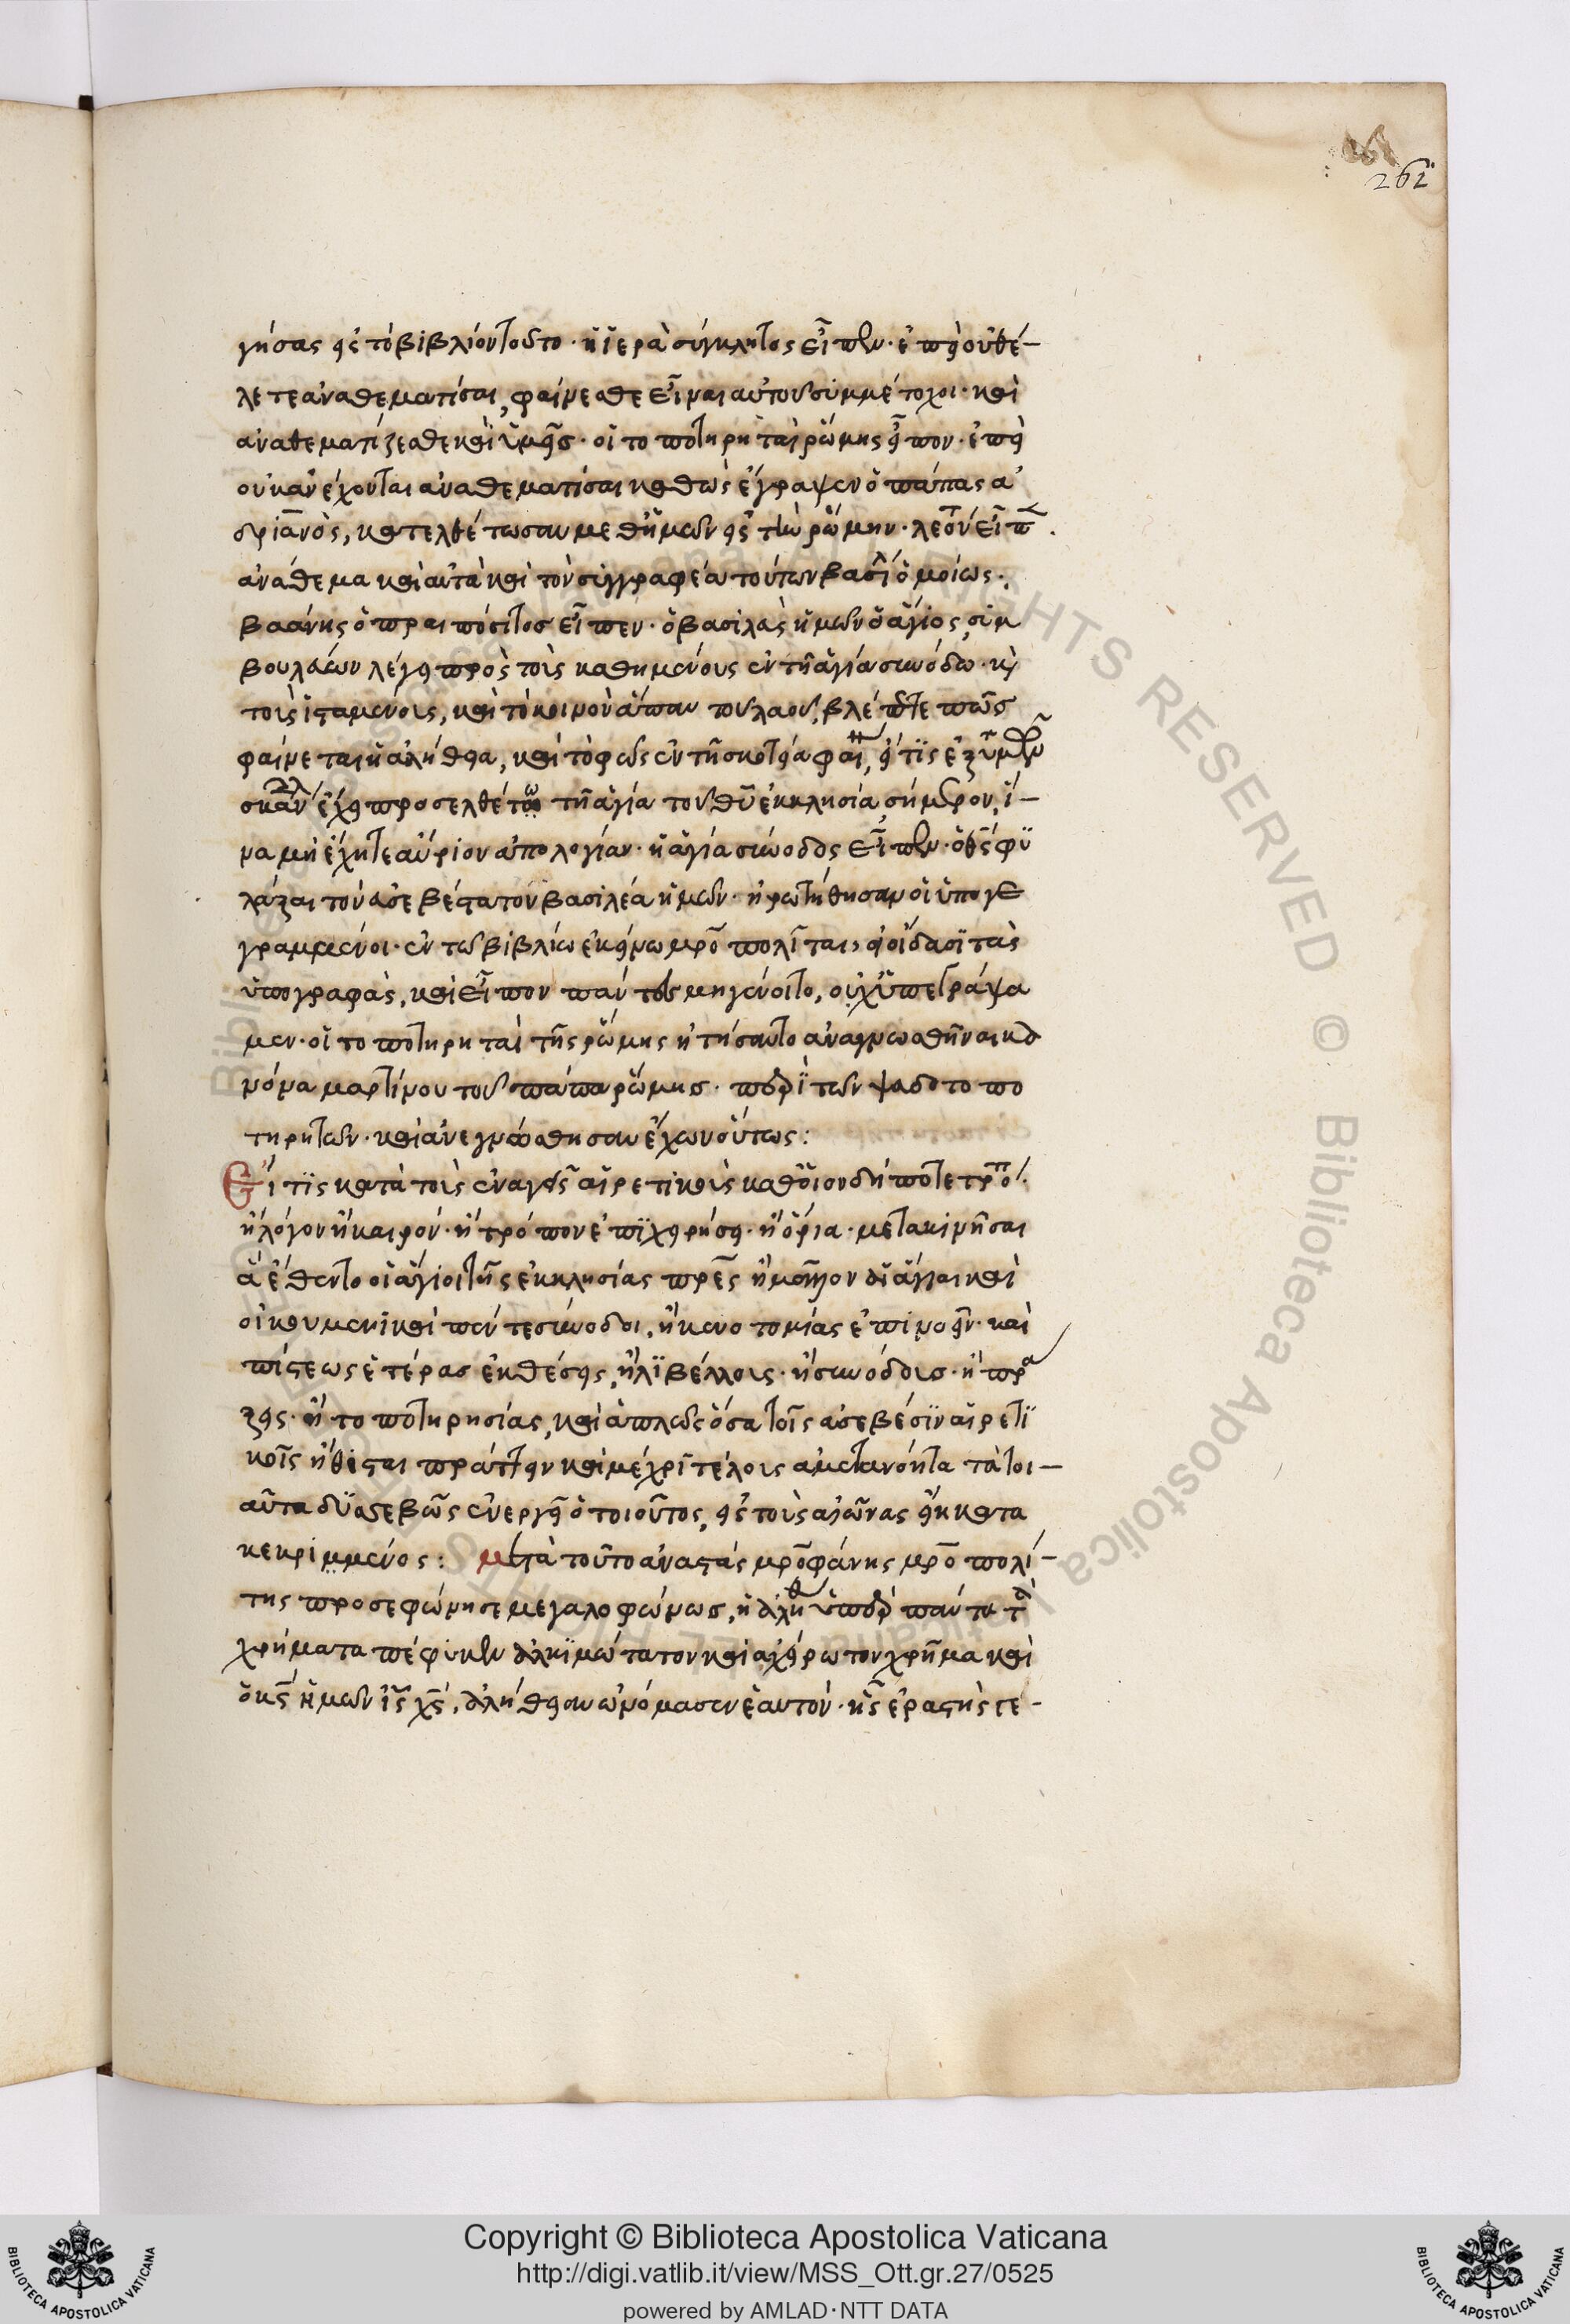 262
γήσας εἰς τὸ βιβλίον τοῦτο · ἡ ἱερὰ σύγκλητος εἶπεν · ἐπεὶ οὐ θέ–
λετε ἀναθεματίσαι, φαίνεσθε εἶναι αὐτοῦ συμμέτοχοι · καὶ
ἀναθεματίζεσθε καὶ ὑμεῖς · οἱ τοποτηρηταὶ ῥώμης εἶπον · ἐπεὶ
οὐκ ἀνέχονται ἀναθεματίσαι καθὼς ἔγραψεν ὁ πάπας ἀ
δριανὸς, κατελθέτωσαν μεθ ἡμῶν εἰς τὴν ῥώμην · λέον εἶπ .
ἀνάθεμα καὶ αὐτὰ καὶ τὸν συγγραφέα τούτων βασίλ ὁμοίως ·
βαάνης ὁ πραιπόσιτος εἶπεν · ὁ βασιλεὺς ἡμῶν ὁ ἅγιος, συμ
βουλεύων λέγει πρὸς τοὺς καθημένους ἐν τῇ ἁγία συνόδω · κὶ
τοὺς ἱσταμένους, καὶ τὸ κοινὸν ἅπαν τοῦ λαοῦ, βλέπετε πῶς
φαίνεται ἡ ἀλήθεια, καὶ τὸ φῶς ἐν τῇ σκοτεία φαίν, εἴ τις ἐξ ὑμῶν
σκάν ἔχει προσελθέτω τῇ ἁγία τοῦ θῦ ἐκκλησία σήμερον, ἵ–
να μὴ ἔχητε αὔριον ἀπολογίαν · ἡ ἁγία σύνοδος εἶπεν · ὁ θς φυ
λάξαι τὸν εὐσεβέστατον βασιλέα ἡμῶν · ἠρωτήθησαν οἱ ὑπογε
γραμμένοι · ἐν τῶ βιβλίω ἐκείνω μρο πολῖται, εἰ οἴδασι τὰς
ὑπογραφὰς, καὶ εἶπον πάντες μὴ γένοιτο, οὐχ ὑπεγράψα
μεν · οἱ τοποτηρηταὶ τῆς ῥώμης ἠτήσαντο ἀναγνωσθῆναι κα
νόνα μαρτίνου τοῦ πάπα ῥώμης · περὶ τῶν ψευδοτοπο
τηρητῶν · καὶ ἀνεγνώσθησαν ἔχων οὕτως :
Εἴ τις κατὰ τοὺς ἐναγεῖς αἱρετικοὺς καθ οἱονδήποτε τρόπ ·
ἢ λόγον ἢ καιρὸν · ἢ τρόπον ἐπιχειρήσει · ἢ ὅρια · μετακινῆσαι
ἃ ἔθεντο οἱ ἅγιοι τῆς ἐκκλησίας πρες ἡμῶν ἤγουν αἱ ἅγιαι καὶ
οἰκουμενικαὶ πέντε σύνοδοι, ἢ καινοτομίας ἐπινοεῖν · καὶ
πίστεως ἑτέρας ἐκθέσεις, ἢ λιβέλλους · ἢ συνόδους · ἢ πρά
ξεις · ἢ τοποτηρησίας, καὶ ἁπλῶς ὅσα τοῖς ἀσεβέσιν αἱρετι
κοῖς εἴθισται πράττειν καὶ μέχρι τέλους ἀμετανόητα τὰ τοι–
αῦτα δυσσεβῶς ἐνεργεῖ ὁ τοιοῦτος, εἰς τοὺς αἰῶνας εἴη κατα
κεκριμμένος : μετὰ τοῦτο ἀναστὰς μροφάνης μρο πολί–
της προσεφώνησε μεγαλοφώνως, ἡ ἀλήθ ὑπὲρ πάντα τὰ
χρήματα πέφυκεν ἀλκιμώτατον καὶ ἀχείρωτον χρῆμα καὶ
ὁ κς ἡμῶν ις χς, ἀλήθειαν ὠνόμασεν ἑαυτὸν · ἧς ἐραστὴς γε–
Copyright © Biblioteca Apostolica Vaticana
http://digi.vatlib.it/view/MSS_Ott.gr.27/0525
powered by AMLAD·NTT DATA